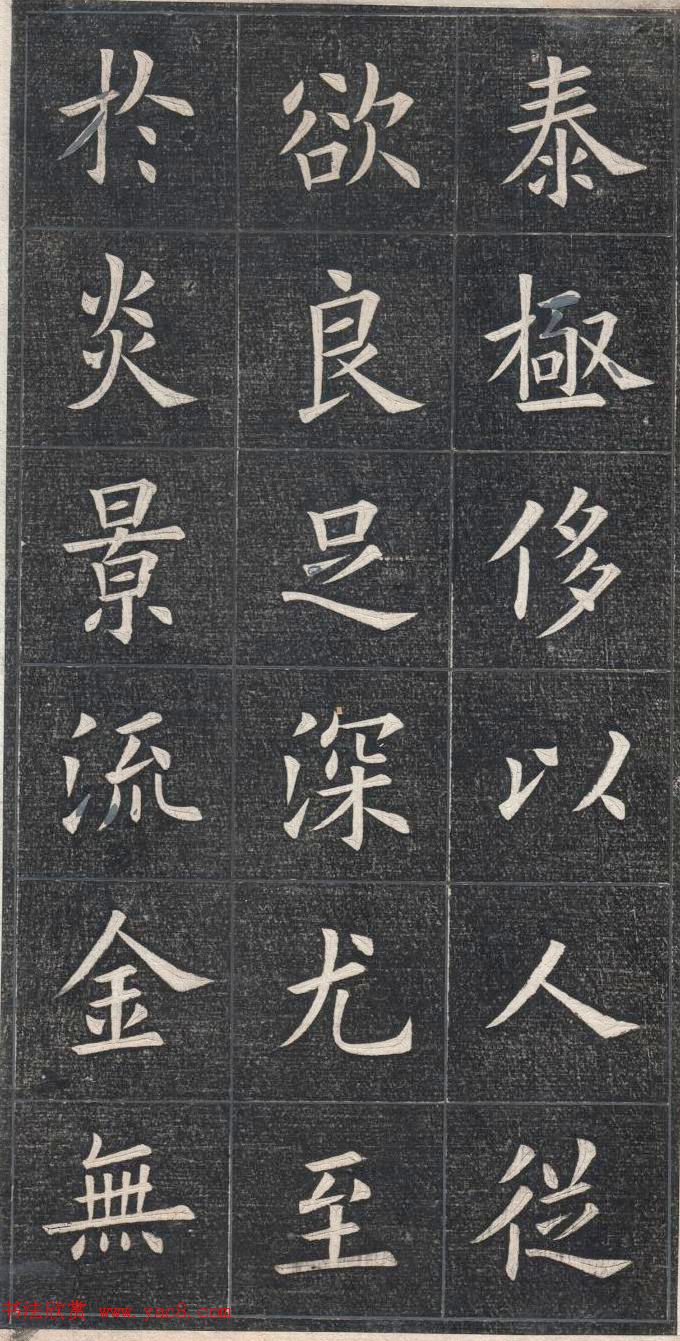 泰極侈以人従
欲良足深尤至
於炎景流金無
书法欣赏 www.yac8.com